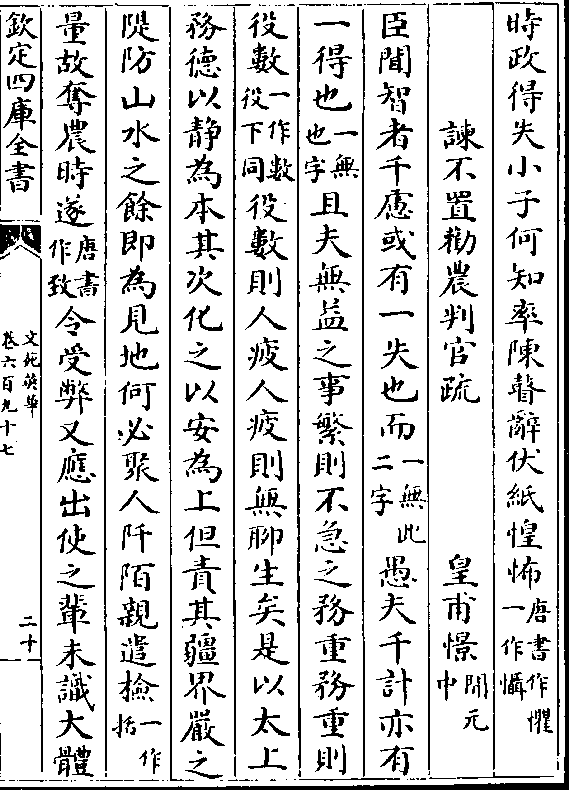 時政得失小子何知率陳瞽辭伏紙惶怖唐書作懼一作懾
諫不置勸農判官疏 皇甫憬開元中
臣聞智者千慮或有一失也而一無此二字愚夫千計亦有
一得也一無也字且夫無益之事繁則不急之務重務重則
役數一作數役下同役數則人疲人疲則無聊生矣是以太上
務德以静為本其次化之以安為上但責其疆界嚴之
隄防山水之餘即為見地何必聚人阡陌親遣檢一作括
量故奪農時遂唐書作致令受弊又應出使之輩未識大體
欽定四庫全書
文苑英華
卷六百九十七
二十